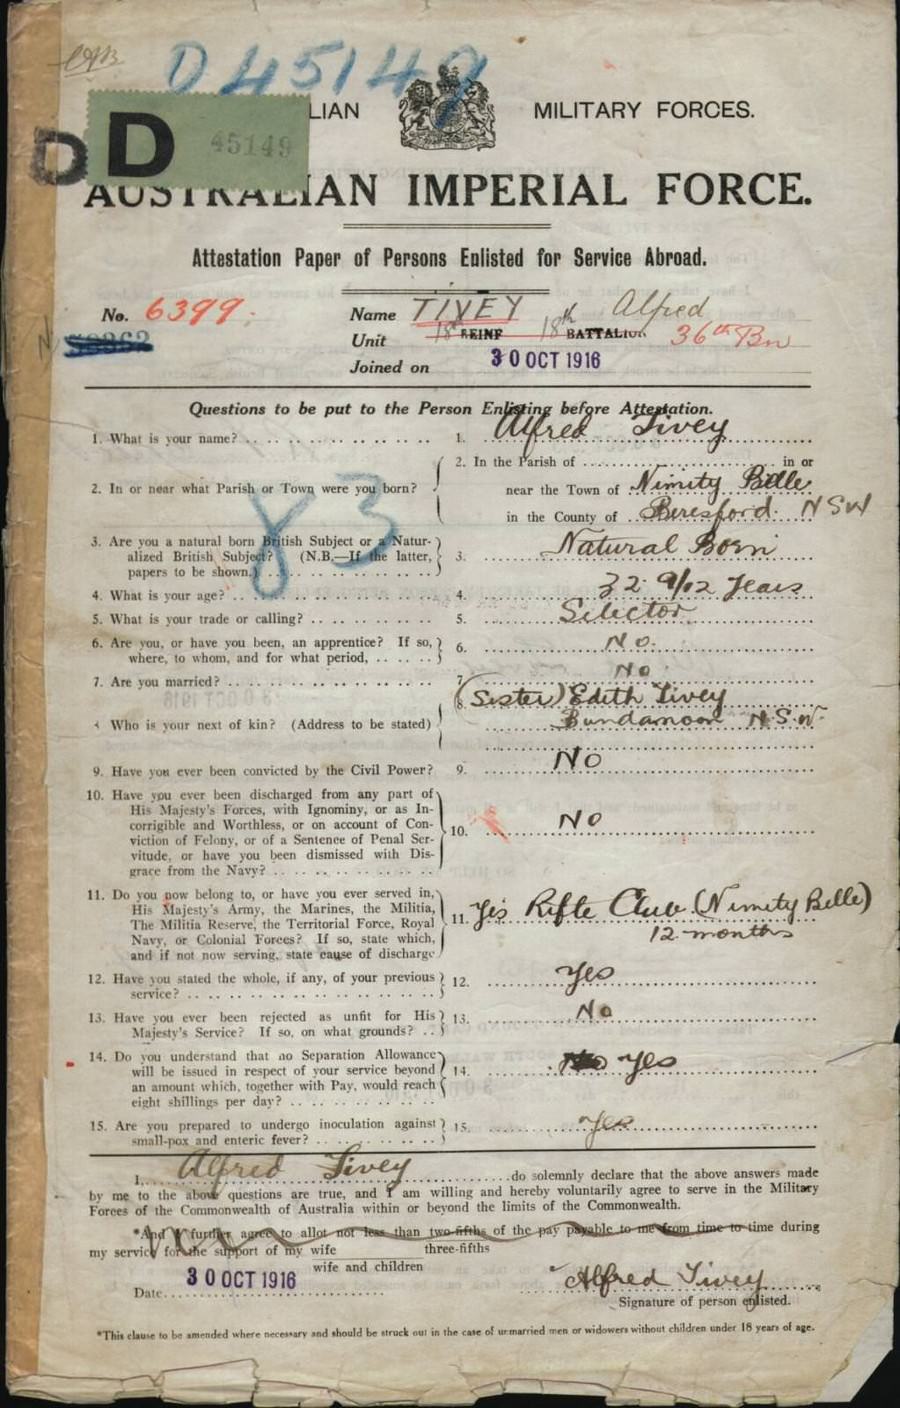 D 45149
LIAN MILITARY FORCES.
D D 45149
AUSTRALIAN IMPERIAL FORCE.
Attestation Paper of Persons Enlisted for Service Abroad.
No. 6399. Name TIVEY Alfred
Unit 18th REINF 18th BATTALION 36th Bn
Joined on 30 OCT 1916
Questions to be put to the Person Enlisting before Attestation.
1. What is your name? 1. Alfred Tivey
2. In or near what Parish or Town were you born? 2. In the Parish of in or
near the Town of Nimity Belle
in the County of Beresford. NSW
83
3. Are you a natural born British Subject or a Natur-
alized British Subject? (N.B.—If the latter,
papers to be shown.) 3. Natural Born
4. What is your age? 4. 32 9/12 Years
5. What is your trade or calling? 5. Selector
6. Are you, or have you been, an apprentice? If so,
where, to whom, and for what period, 6. No.
7. Are you married? 7. No.
Who is your next of kin? (Address to be stated) 8. (Sister) Edith Tivey
Bundanoon N.S.W.
9. Have you ever been convicted by the Civil Power? 9. No
10. Have you ever been discharged from any part of
His Majesty's Forces, with Ignominy, or as In-
corrigible and Worthless, or on account of Con-
viction of Felony, or of a Sentence of Penal Ser-
vitude, or have you been dismissed with Dis-
grace from the Navy? 10. No
11. Do you now belong to, or have you ever served in,
His Majesty's Army, the Marines, the Militia,
The Militia Reserve, the Territorial Force, Royal
Navy, or Colonial Forces? If so, state which,
and if not now serving, state cause of discharge 11. Yes Rifle Club (Nimity Belle)
12 months
12. Have you stated the whole, if any, of your previous
service? 12. Yes
13. Have you ever been rejected as unfit for His
Majesty's Service? If so, on what grounds? 13. No
14. Do you understand that no Separation Allowance
will be issued in respect of your service beyond
an amount which, together with Pay, would reach
eight shillings per day? 14. No Yes
15. Are you prepared to undergo inoculation against
small-pox and enteric fever? 15. Yes
I, Alfred Tivey do solemnly declare that the above answers made
by me to the above questions are true, and I am willing and hereby voluntarily agree to serve in the Military
Forces of the Commonwealth of Australia within or beyond the limits of the Commonwealth.
*And I further agree to allot not less than two-fifths of the pay payable to me from time to time during
my service for the support of my wife three-fifths
wife and children
Date 30 OCT 1916 Alfred Tivey
Signature of person enlisted.
*This clause to be amended where necessary and should be struck out in the case of unmarried men or widowers without children under 18 years of age.